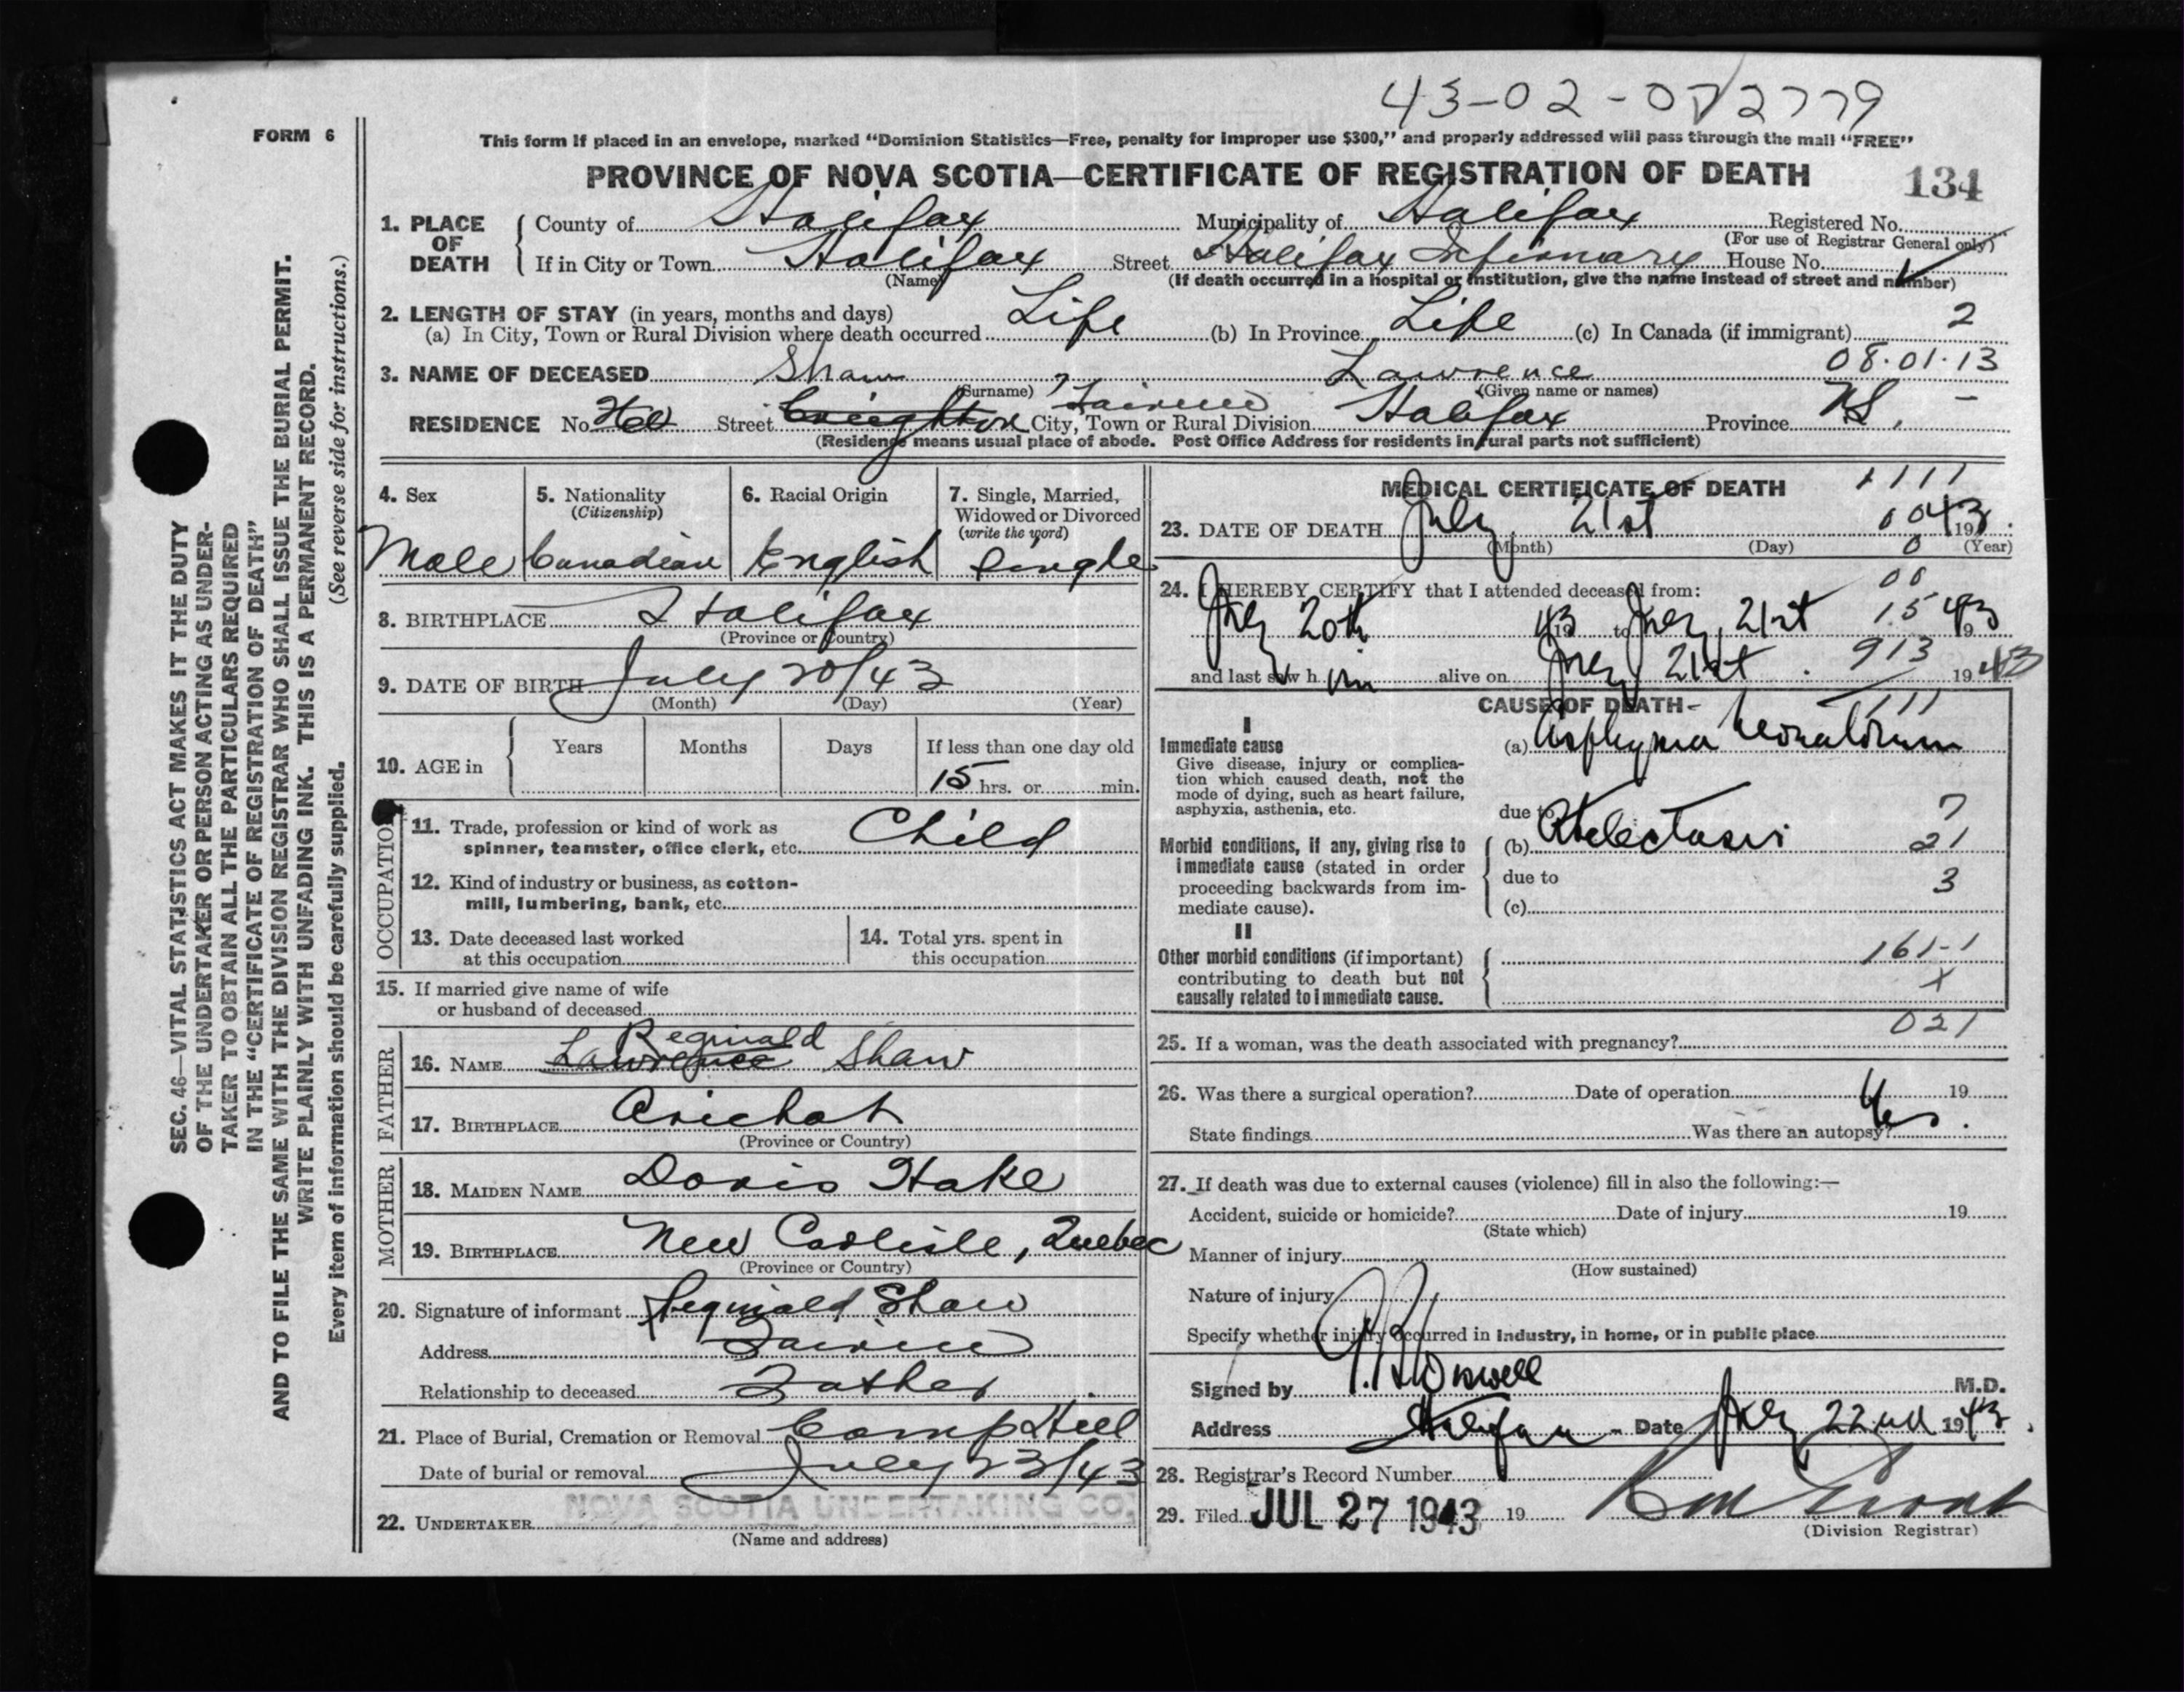 43-02-072779
FORM 6
This form if placed in an envelope, marked “Dominion Statistics—Free, penalty for improper use $300,” and properly addressed will pass through the mail “FREE”
PROVINCE OF NOVA SCOTIA—CERTIFICATE OF REGISTRATION OF DEATH
134
1. PLACE OF DEATH { County of Halifax Municipality of Halifax Registered No.
(For use of Registrar General only)
If in City or Town Halifax Street Halifax Infirmary House No.
(Name) (If death occurred in a hospital or institution, give the name instead of street and number)
2. LENGTH OF STAY (in years, months and days)
(a) In City, Town or Rural Division where death occurred Life (b) In Province Life (c) In Canada (if immigrant) 2
08.01.13
3. NAME OF DECEASED Shaw Lawrence
(Surname) (Given name or names)
RESIDENCE No. Street Creighton City, Town or Rural Division Halifax Province NS. -
(Residence means usual place of abode. Post Office Address for residents in rural parts not sufficient)
4. Sex
Male
5. Nationality
(Citizenship)
Canadian
6. Racial Origin
English
7. Single, Married,
Widowed or Divorced
(write the word)
Single
8. BIRTHPLACE Halifax
(Province or Country)
9. DATE OF BIRTH July 20/43
(Month) (Day) (Year)
10. AGE in { Years Months Days If less than one day old
15 hrs. or min.
OCCUPATION
11. Trade, profession or kind of work as
spinner, teamster, office clerk, etc. Child
12. Kind of industry or business, as cotton-
mill, lumbering, bank, etc.
13. Date deceased last worked
at this occupation
14. Total yrs. spent in
this occupation
15. If married give name of wife
or husband of deceased
FATHER
Reginald
16. NAME Lawrence Shaw
17. BIRTHPLACE Arichat
(Province or Country)
MOTHER
18. MAIDEN NAME Doris Hake
19. BIRTHPLACE New Carlisle, Quebec
(Province or Country)
20. Signature of informant Reginald Shaw
Address
Relationship to deceased Father
21. Place of Burial, Cremation or Removal Camp Hill
Date of burial or removal July 23/43
22. UNDERTAKER NOVA SCOTIA UNDERTAKING CO.
(Name and address)
MEDICAL CERTIFICATE OF DEATH 1111
23. DATE OF DEATH July 21st 1943
(Month) (Day) (Year)
24. I HEREBY CERTIFY that I attended deceased from:
July 20th 1943 to July, 21st 1943
15
and last saw him alive on July 21st. 1943
913
CAUSE OF DEATH
111
I
Immediate cause
Give disease, injury or complica-
tion which caused death, not the
mode of dying, such as heart failure,
asphyxia, asthenia, etc.
(a) Asphyxia Neonatorum
due to
7
Morbid conditions, if any, giving rise to
immediate cause (stated in order
proceeding backwards from im-
mediate cause).
(b) Atelectasis 21
due to 3
(c)
II
Other morbid conditions (if important)
contributing to death but not
causally related to immediate cause.
161-1
X
021
25. If a woman, was the death associated with pregnancy?
26. Was there a surgical operation? Date of operation 19
State findings Was there an autopsy? Yes.
27. If death was due to external causes (violence) fill in also the following:—
Accident, suicide or homicide? Date of injury 19
(State which)
Manner of injury
(How sustained)
Nature of injury
Specify whether injury occurred in industry, in home, or in public place
Signed by M.D.
Address Halifax - Date July 22nd 1943.
28. Registrar's Record Number
29. Filed JUL 27 1943 19
(Division Registrar)
SEC. 46—VITAL STATISTICS ACT MAKES IT THE DUTY
OF THE UNDERTAKER OR PERSON ACTING AS UNDER-
TAKER TO OBTAIN ALL THE PARTICULARS REQUIRED
IN THE “CERTIFICATE OF REGISTRATION OF DEATH”
AND TO FILE THE SAME WITH THE DIVISION REGISTRAR WHO SHALL ISSUE THE BURIAL PERMIT.
WRITE PLAINLY WITH UNFADING INK. THIS IS A PERMANENT RECORD.
Every item of information should be carefully supplied. (See reverse side for instructions.)